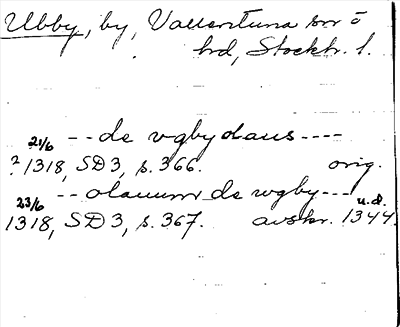 Ubby, by, Vallentuna sn o
hd, Stockh. l.
21/6 -- de vgby daus ----
? 1318, SD 3, s. 366. orig.
23/6 -- olauum de wgby --- u.d.
1318, SD 3, s. 367. avskr. 1344.